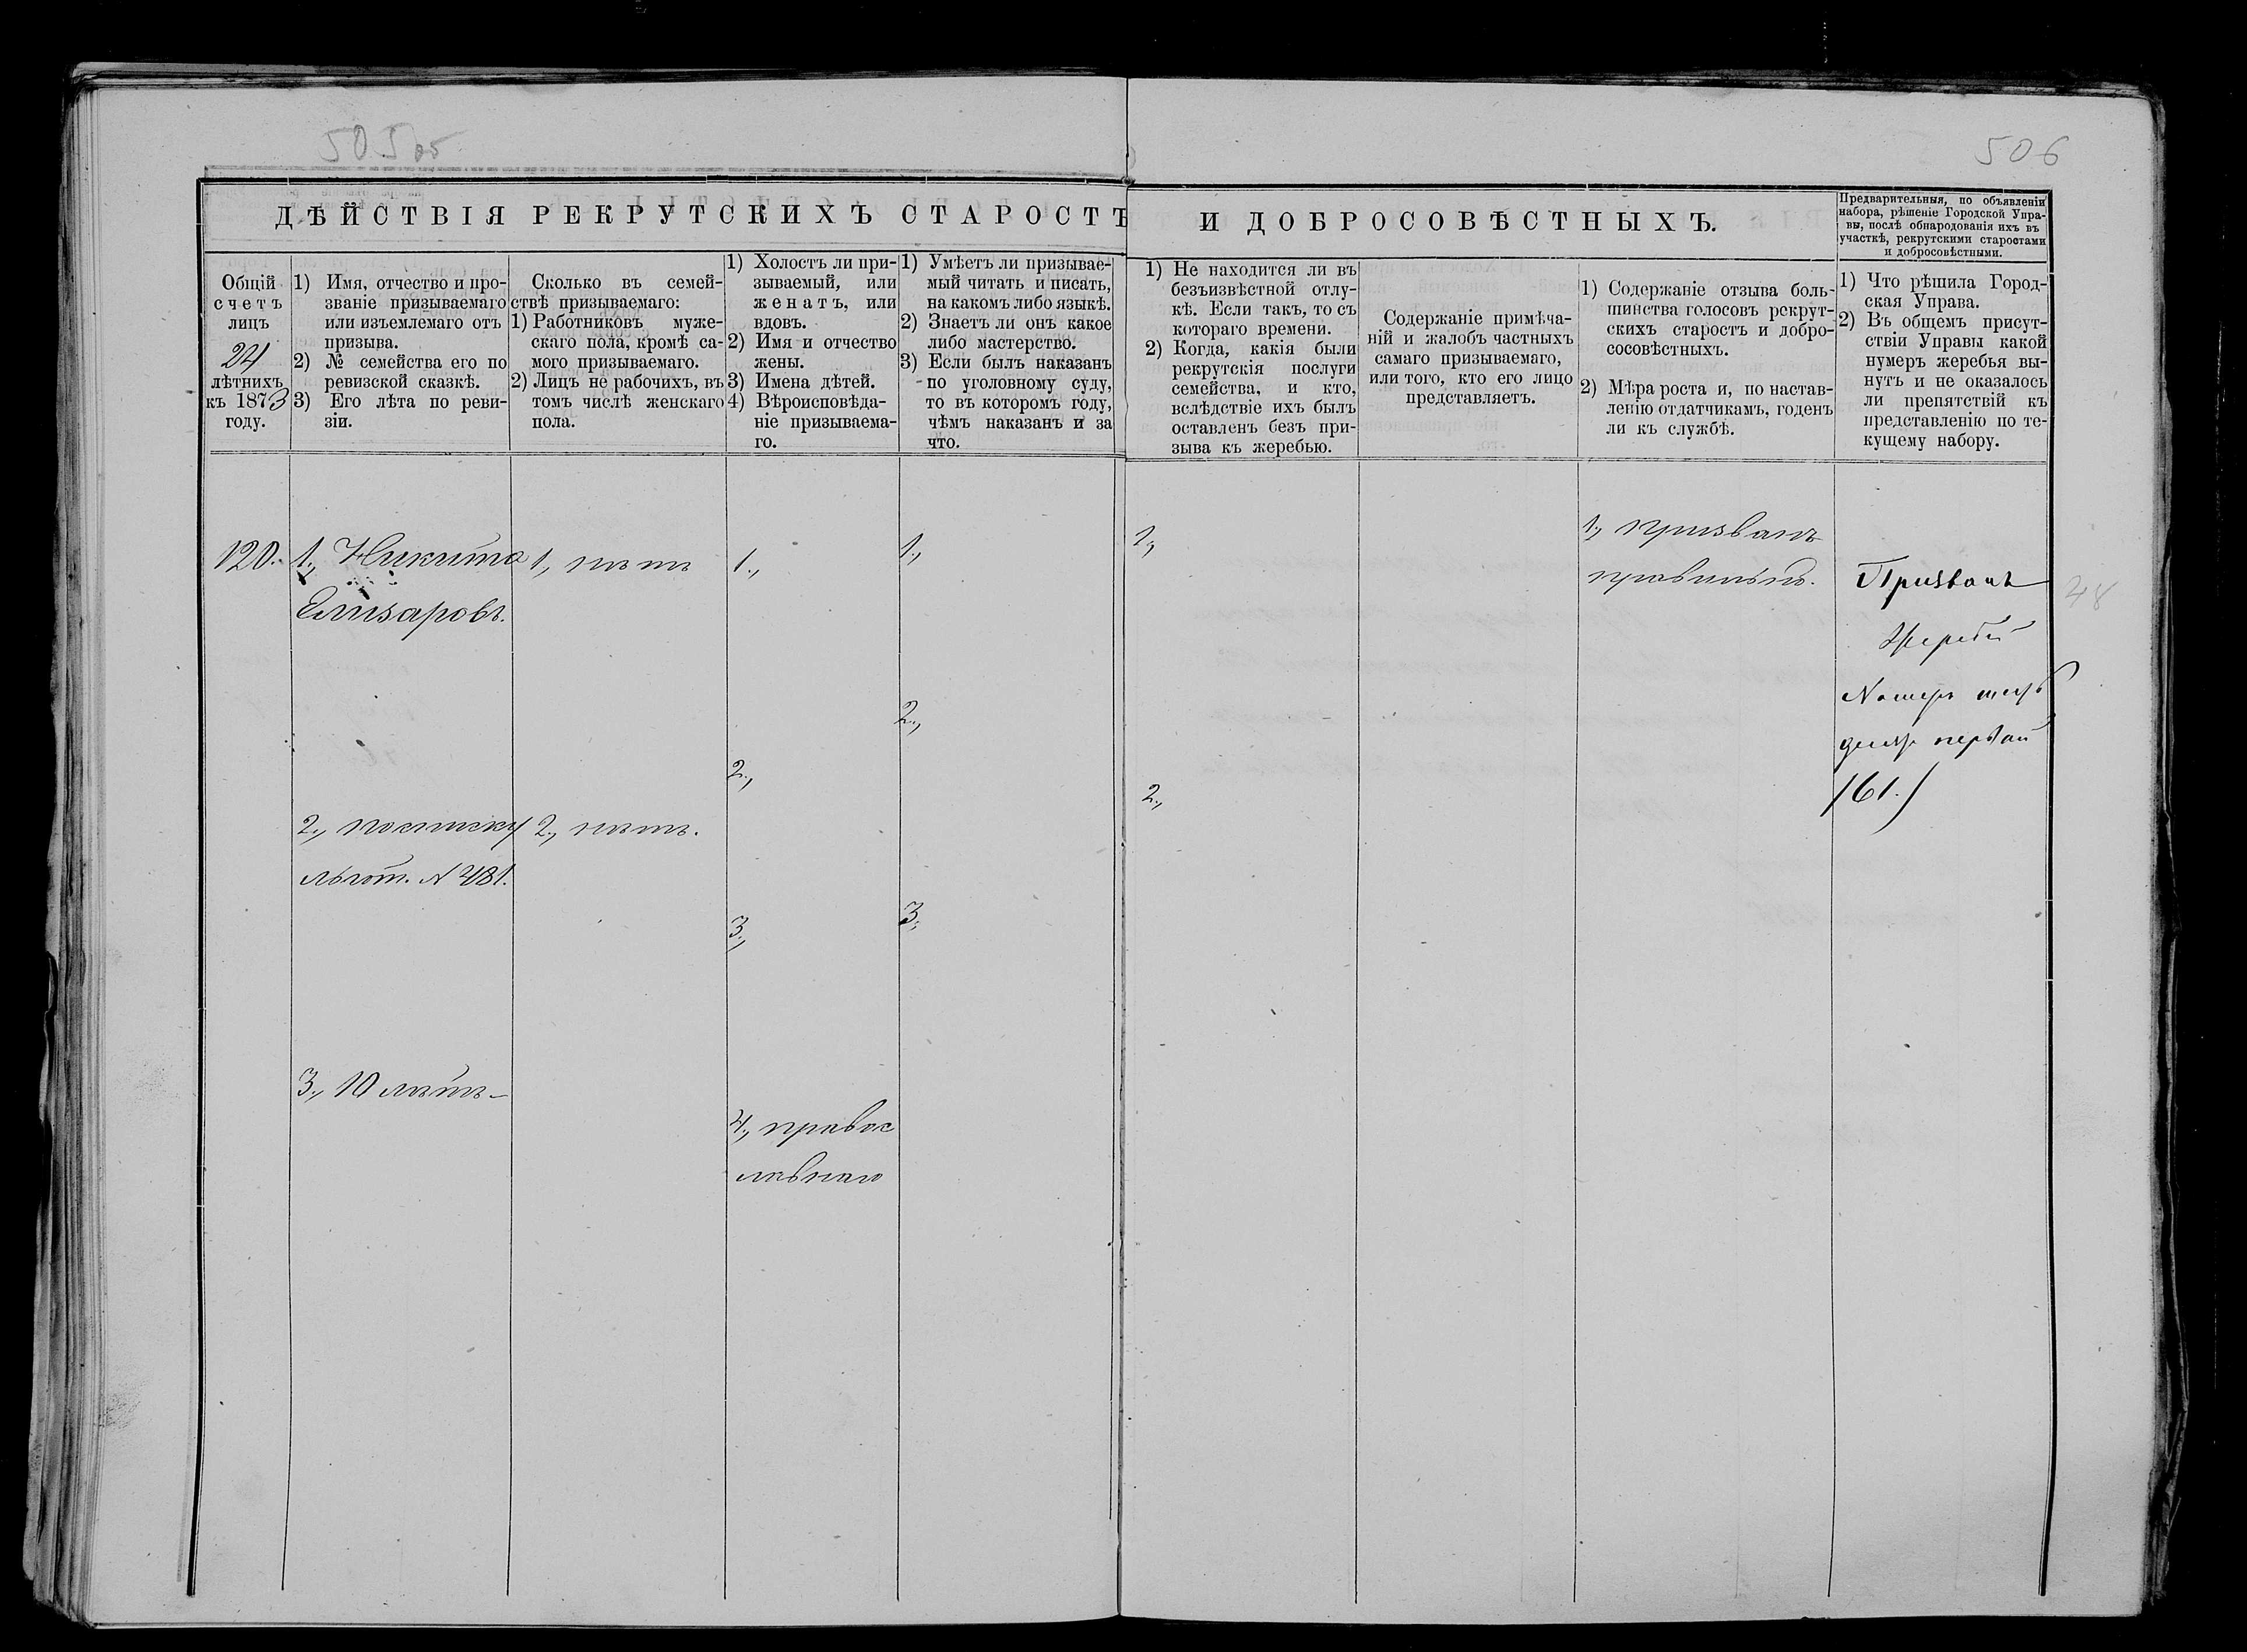 505 об
506
ДѢЙСТВІЯ РЕКРУТСКИХЪ СТАРОСТЪ
И ДОБРОСОВѢСТНЫХЪ.
Предварительныя, по объявленіи
набора, рѣшеніе Городской Упра-
вы, послѣ обнародованія ихъ въ
участкѣ, рекрутскими старостами
и добросовѣстными.
Общій
счетъ
лицъ
21
лѣтнихъ
къ 1873
году.
1) Имя, отчество и про-
званіе призываемаго
или изъемлемаго отъ
призыва.
2) № семейства его по
ревизской сказкѣ.
3) Его лѣта по реви-
зіи.
Сколько въ семей-
ствѣ призываемаго:
1) Работниковъ муже-
скаго пола, кромѣ са-
мого призываемаго.
2) Лицъ не рабочихъ, въ
томъ числѣ женскаго
пола.
1) Холостъ ли при-
зываемый, или
женатъ, или
вдовъ.
2) Имя и отчество
жены.
3) Имена дѣтей.
4) Вѣроисповѣда-
ніе призываема-
го.
1) Умѣетъ ли призывае-
мый читать и писать,
на какомъ либо языкѣ.
2) Знаетъ ли онъ какое
либо мастерство.
3) Если былъ наказанъ
по уголовному суду,
то въ которомъ году,
чѣмъ наказанъ и за
что.
1) Не находится ли въ
безъизвѣстной отлу-
кѣ. Если такъ, то съ
котораго времени.
2) Когда, какія были
рекрутскія послуги
семейства, и кто,
вслѣдствіе ихъ былъ
оставленъ безъ при-
зыва къ жеребью.
Содержаніе примѣча-
ній и жалобъ частныхъ
самаго призываемаго,
или того, кто его лицо
представляетъ.
1) Содержаніе отзыва боль-
шинства голосовъ рекрут-
скихъ старостъ и добро-
сосовѣстныхъ.
2) Мѣра роста и, по настав-
ленію отдатчикамъ, годенъ
ли къ службѣ.
1) Что рѣшила Город-
ская Управа.
2) Въ общемъ присут-
ствіи Управы какой
нумеръ жеребья вы-
нутъ и не оказалось
ли препятствій къ
представленію по те-
кущему набору.
120.
1., Никита
Елизаровъ.
2., посписку
льгот. № 481.
3., 10 лѣтъ
1., нѣтъ
2., нѣтъ.
1.,
2.,
3.,
4., правос
лавнаго
1.,
2.,
3.,
1.,
2.,
1., призванъ
правильно.
Призванъ
Жребій
Номеръ шесть
десятъ первый
/61./
48